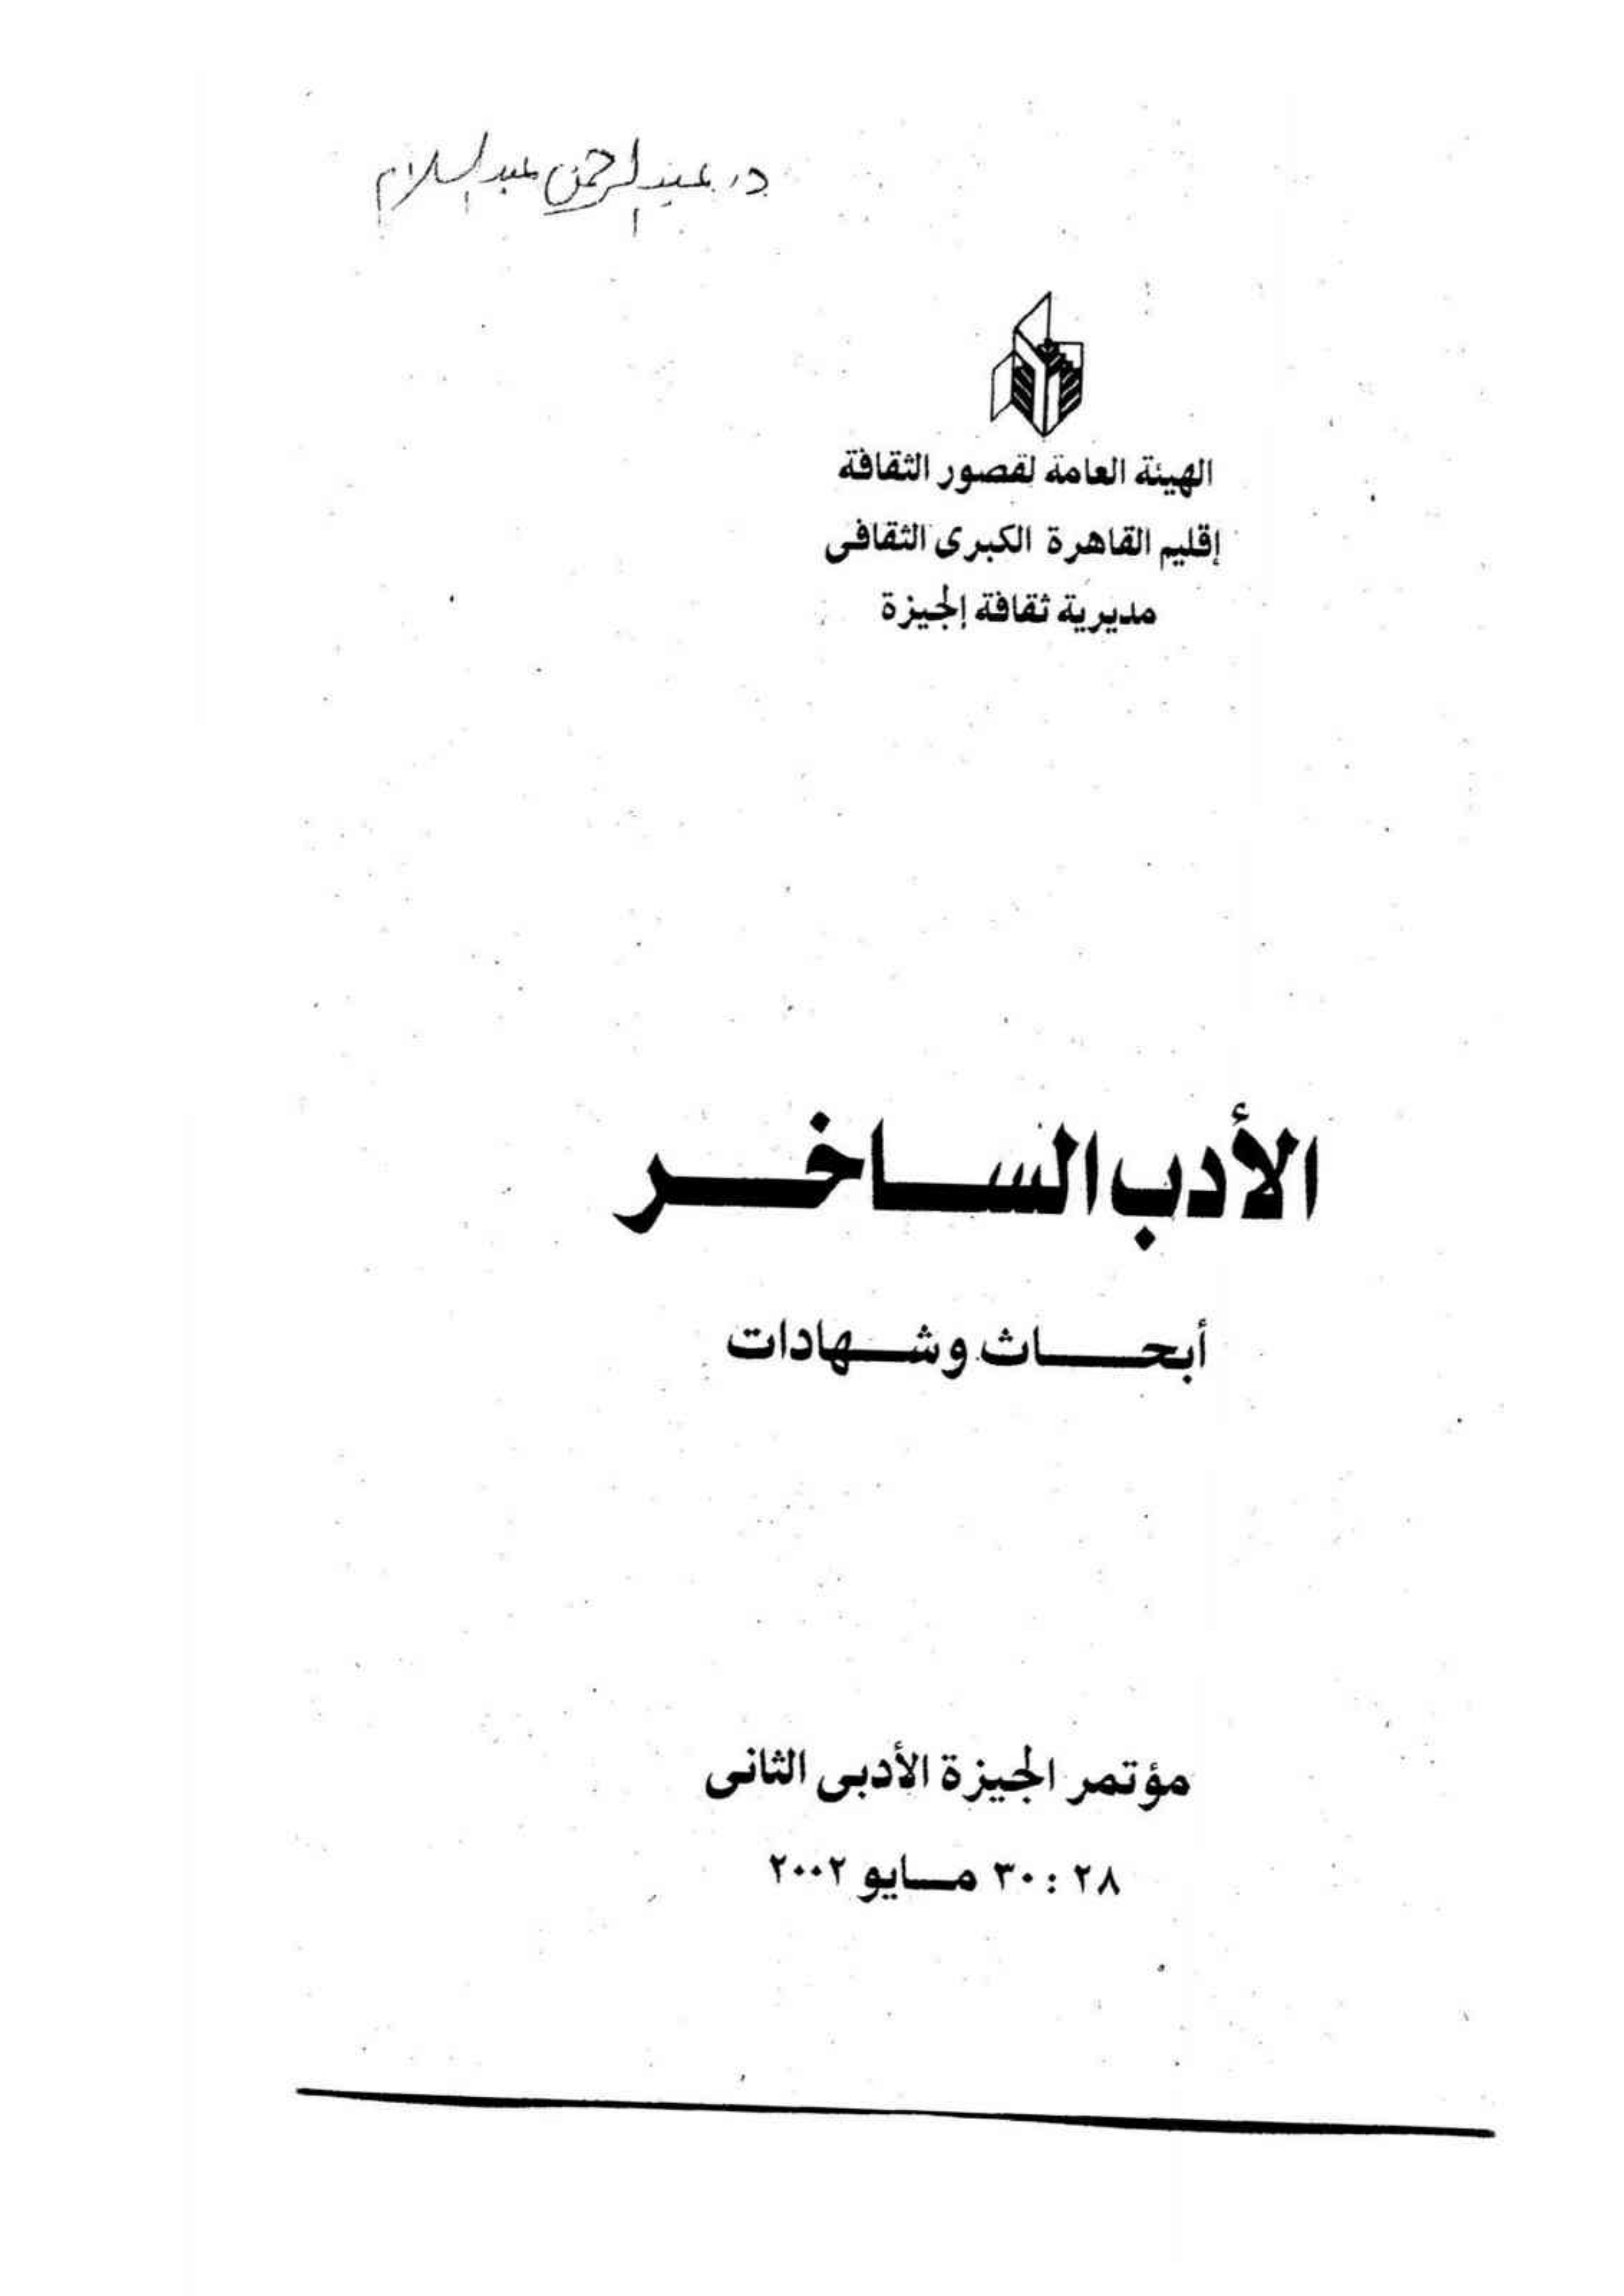 د. عبد الرحمن عبد السلام
الهيئة العامة لقصور الثقافة
إقليم القاهرة الكبرى الثقافى
مديرية ثقافة الجيزة
الأدب الساخر
أبحاث وشهادات
مؤتمر الجيزة الأدبى الثانى
٢٨ : ٣٠ مايو ٢٠٠٢